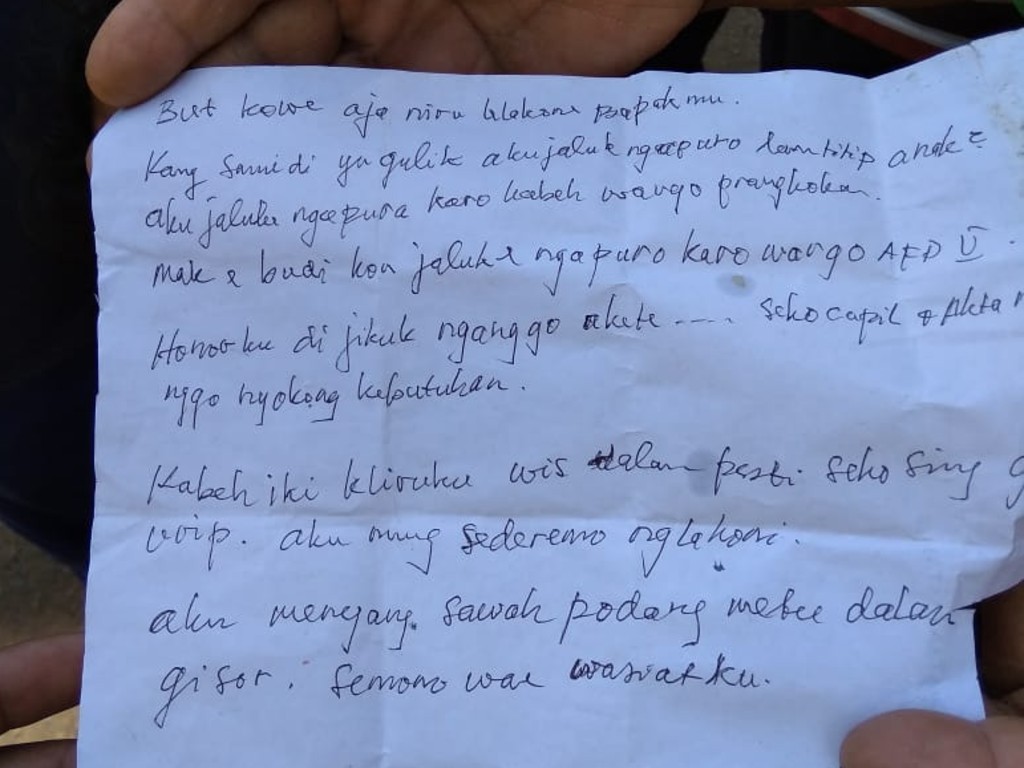 But kowe aja niru lelakone bapakmu.
Kang Samidi yu gulik aku jaluk ngapuro lan titip anak2
aku jaluk ngapura karo kabeh wargo prangkokan.
Mak e budi kon jaluk2 ngapuro karo wargo AFD II.
Honorku di jikuk nganggo akete .... seko capil
nggo nyokong kebutuhan.
Kabeh iki kliruku wis dalan pesti seko sing
urip. aku mung sederemo nglakoni.
aku menyang sawah podang metu dalan
gisor. semono wae wasiatku.